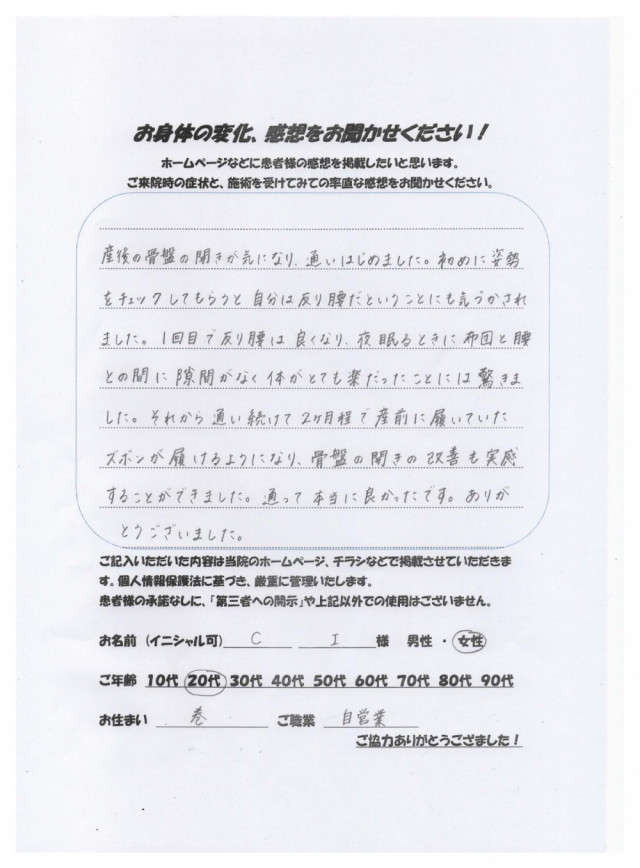 お身体の変化、感想をお聞かせください！
ホームページなどに患者様の感想を掲載したいと思います。
ご来院時の症状と、施術を受けてみての率直な感想をお聞かせください。
産後の骨盤の開きが気になり、通いはじめました。初めに姿勢
をチェックしてもらうと自分は反り腰だということにも気づかされ
ました。1回目で反り腰は良くなり、夜眠るときに布団と腰
との間に隙間がなく体がとても楽だったことには驚きま
した。それから通い続けて2ヶ月程で産前に履いていた
ズボンが履けるようになり、骨盤の開きの改善も実感
することができました。通って本当に良かったです。ありが
とうございました。
ご記入いただいた内容は当院のホームページ、チラシなどで掲載させていただきま
す。個人情報保護法に基づき、厳重に管理いたします。
患者様の承諾なしに、「第三者への開示」や上記以外での使用はございません。
お名前（イニシャル可） C I 様 男性・女性
ご年齢 10代 20代 30代 40代 50代 60代 70代 80代 90代
お住まい 巻 ご職業 自営業
ご協力ありがとうござました！